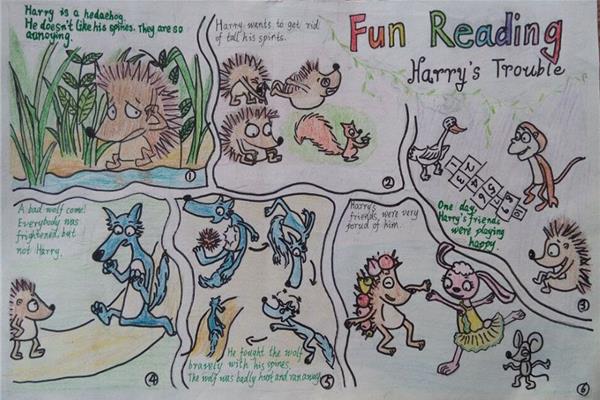 Fun Reading
Harry's Trouble
Harry is a hedgehog.
He doesn't like his spines. They are so
annoying.
①
Harry wants to get rid
of tall his spints.
②
One day,
Harry's friends
were playing
happy.
③
A bad wolf come!
Everybody was
frightened, but
not Harry.
④
He fought the wolf
bravely with his spines.
The wolf was badly hurt and ran away.
⑤
Harry's
friends were very
poroud of him.
⑥